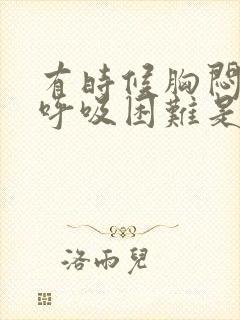 有時候胸悶
呼吸困難是
洛雨兒